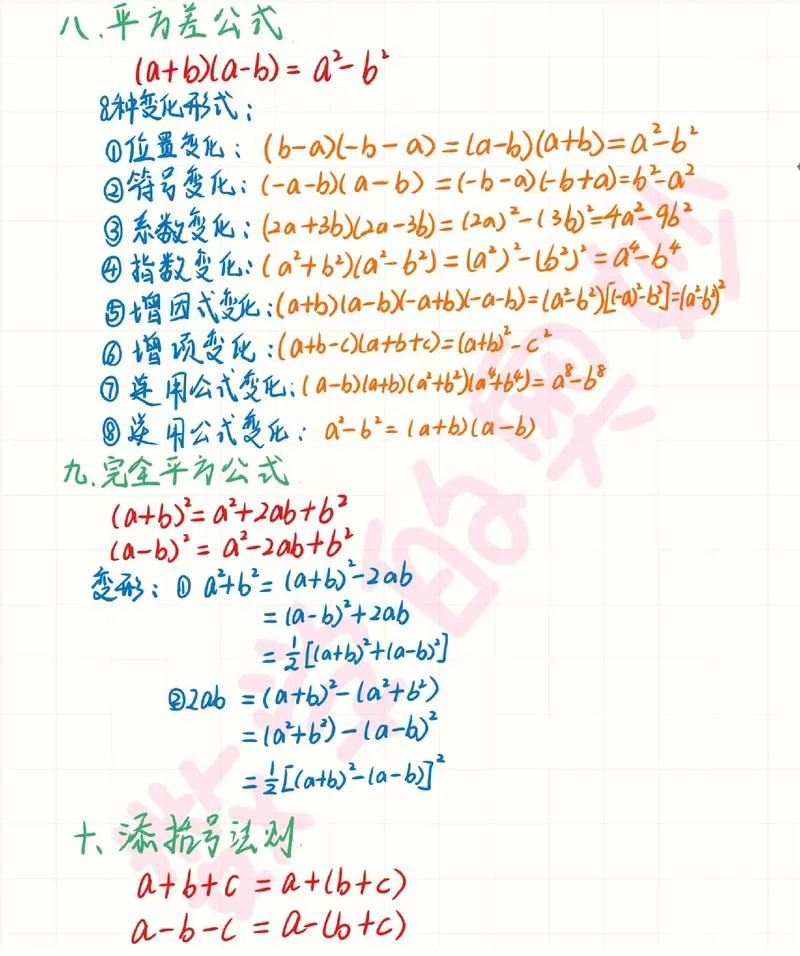 八.平方差公式
(a+b)(a-b)= a²-b²
8种变化形式：
①位置变化：(b-a)(-b-a)=(a-b)(a+b)=a²-b²
②符号变化：(-a-b)(a-b)=(-b-a)(-b+a)=b²-a²
③系数变化：(2a+3b)(2a-3b)=(2a)²-(3b)²=4a²-9b²
④指数变化：(a²+b²)(a²-b²)=(a²)²-(b²)²=a⁴-b⁴
⑤增因式变化：(a+b)(a-b)(-a+b)(-a-b)=(a²-b²)[(-a)²-b²]=(a²-b²)²
⑥增项变化：(a+b-c)(a+b+c)=(a+b)²-c²
⑦连用公式变化：(a-b)(a+b)(a²+b²)(a⁴+b⁴)=a⁸-b⁸
⑧逆用公式变化：a²-b²=(a+b)(a-b)
九.完全平方公式
(a+b)²=a²+2ab+b²
(a-b)²=a²-2ab+b²
变形：①a²+b²=(a+b)²-2ab
=(a-b)²+2ab
=½[(a+b)²+(a-b)²]
②2ab=(a+b)²-(a²+b²)
=(a²+b²)-(a-b)²
=½[(a+b)²-(a-b)]²
十、添括号法则
a+b+c=a+(b+c)
a-b-c=a-(b+c)
数学的奥妙